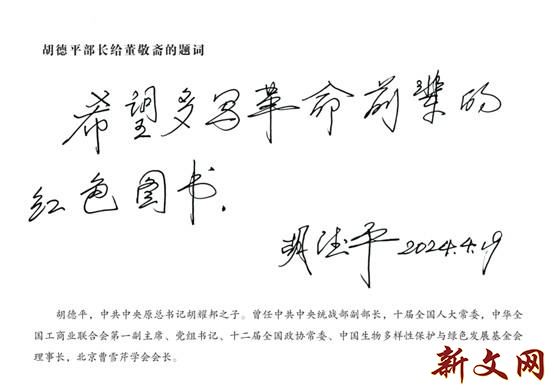 胡德平部长给董敬斋的题词
希望多写革命前辈的
红色图书.
胡德平 2024.4.19
胡德平，中共中央原总书记胡耀邦之子。曾任中共中央统战部副部长，十届全国人大常委，中华全
国工商业联合会第一副主席、党组书记、十二届全国政协常委、中国生物多样性保护与绿色发展基金会
理事长，北京曹雪芹学会会长。
新文网